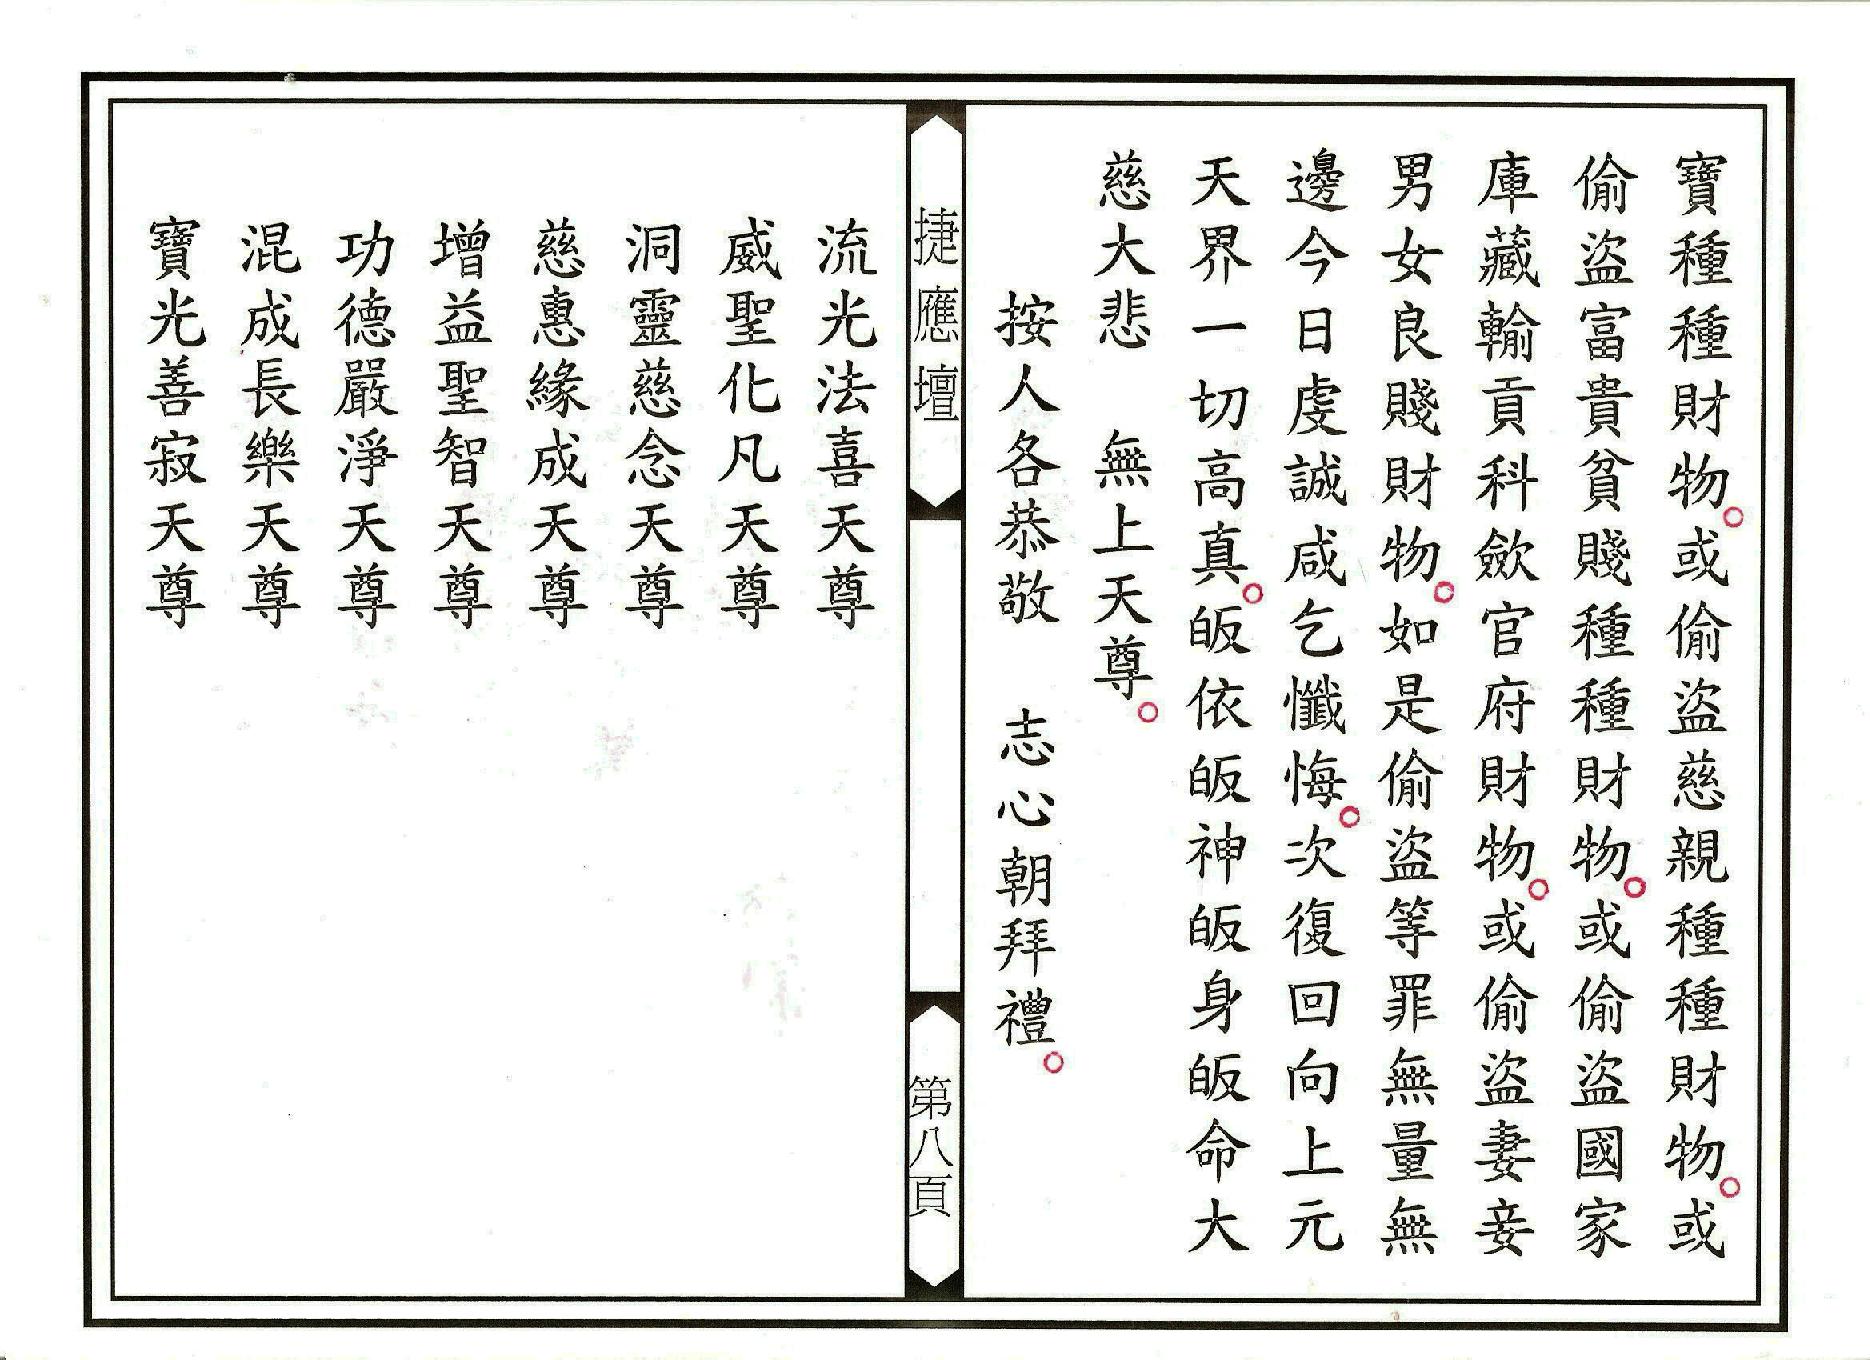 寶種種財物。或偷盜慈親種種財物。或
偷盜富貴貧賤種種財物。或偷盜國家
庫藏輸貢科斂官府財物。或偷盜妻妾
男女良賤財物。如是偷盜等罪無量無
邊今日虔誠咸乞懺悔。次復回向上元
天界一切高真。皈依皈神皈身皈命大
慈大悲　無上天尊。
按人各恭敬　志心朝拜禮。
捷應壇
第八頁
流光法喜天尊
威聖化凡天尊
洞靈慈念天尊
慈惠緣成天尊
增益聖智天尊
功德嚴淨天尊
混成長樂天尊
寶光善寂天尊